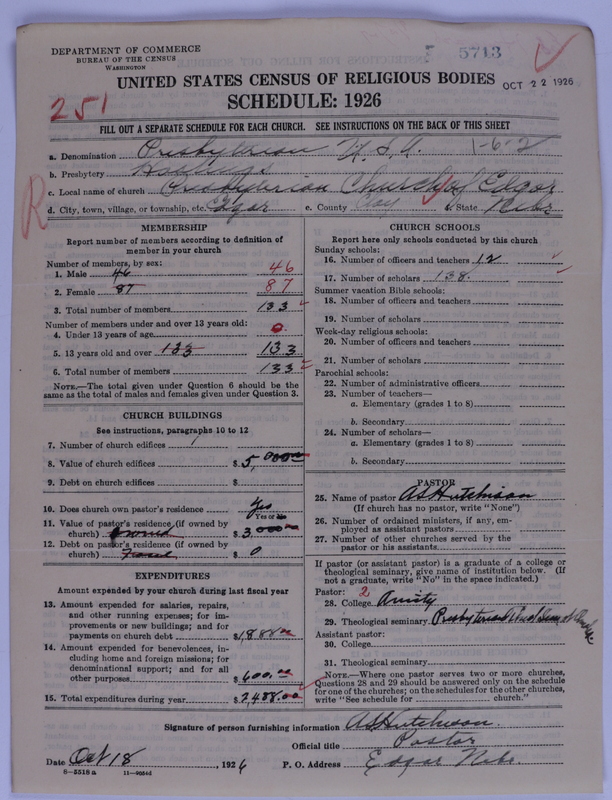 DEPARTMENT OF COMMERCE
BUREAU OF THE CENSUS
WASHINGTON
5713
UNITED STATES CENSUS OF RELIGIOUS BODIES
OCT 22 1926
251
SCHEDULE: 1926
FILL OUT A SEPARATE SCHEDULE FOR EACH CHURCH. SEE INSTRUCTIONS ON THE BACK OF THIS SHEET
a. Denomination Presbyterian U.S.A. 1-6-2
b. Presbytery Hastings
c. Local name of church Presbyterian Church of Edgar
d. City, town, village, or township, etc. Edgar e. County Clay f. State Nebr
R
MEMBERSHIP
Report number of members according to definition of member in your church
Number of members by sex:
1. Male 46 46
2. Female 87 87
3. Total number of members 133
Number of members under and over 13 years old:
4. Under 13 years of age 0
5. 13 years old and over 133 133
6. Total number of members 133
NOTE.—The total given under Question 6 should be the same as the total of males and females given under Question 3.
CHURCH BUILDINGS
See instructions, paragraphs 10 to 12
7. Number of church edifices 1
8. Value of church edifices $5,000.00
9. Debt on church edifices $
10. Does church own pastor's residence Yes
Yes or No
11. Value of pastor's residence (if owned by church) owned $3,000
12. Debt on pastor's residence (if owned by church) $0
EXPENDITURES
Amount expended by your church during last fiscal year
13. Amount expended for salaries, repairs, and other running expenses; for improvements or new buildings; and for payments on church debt $1,888.00
14. Amount expended for benevolences, including home and foreign missions; for denominational support; and for all other purposes $600.00
15. Total expenditures during year $2,488.00
CHURCH SCHOOLS
Report here only schools conducted by this church
Sunday schools:
16. Number of officers and teachers 12
17. Number of scholars 138
Summer vacation Bible schools:
18. Number of officers and teachers
19. Number of scholars
Week-day religious schools:
20. Number of officers and teachers
21. Number of scholars
Parochial schools:
22. Number of administrative officers
23. Number of teachers—
a. Elementary (grades 1 to 8)
b. Secondary
24. Number of scholars—
a. Elementary (grades 1 to 8)
b. Secondary
PASTOR
25. Name of pastor A S Hutchison
(If church has no pastor, write "None")
26. Number of ordained ministers, if any, employed as assistant pastors
27. Number of other churches served by the pastor or his assistants
If pastor (or assistant pastor) is a graduate of a college or theological seminary, give name of institution below. (If not a graduate, write "No" in the space indicated.)
Pastor: 2
28. College Amity
29. Theological seminary Presbyterian
Assistant pastor:
30. College
31. Theological seminary
NOTE.—Where one pastor serves two or more churches, Questions 28 and 29 should be answered only on the schedule for one of the churches; on the schedules for the other churches, write "See schedule for church."
Signature of person furnishing information A S Hutchison
Official title Pastor
Date Oct 18, 1926 P. O. Address Edgar Nebr.
8-5518 a 11-9034d